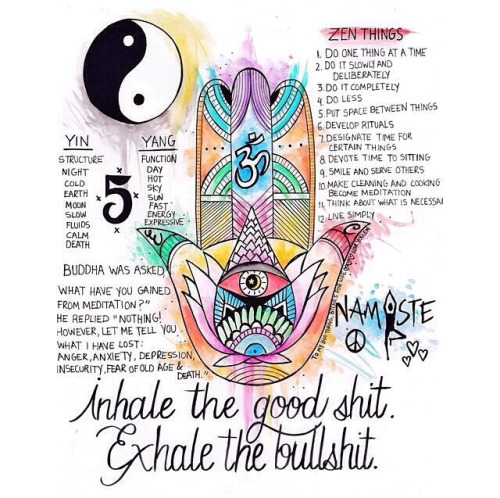 ZEN THINGS
1. DO ONE THING AT A TIME
2. DO IT SLOWLY AND
DELIBERATELY
3. DO IT COMPLETELY
4. DO LESS
5. PUT SPACE BETWEEN THINGS
6. DEVELOP RITUALS
7. DESIGNATE TIME FOR
CERTAIN THINGS
8. DEVOTE TIME TO SITTING
9. SMILE AND SERVE OTHERS
10. MAKE CLEANING AND COOKING
BECOME MEDITATION
11. THINK ABOUT WHAT IS NECESSAI
12. LIVE SIMPLY
YIN
STRUCTURE
NIGHT
COLD
EARTH
MOON
SLOW
FLUIDS
CALM
DEATH
5
YANG
FUNCTION
DAY
HOT
SKY
SUN
FAST
ENERGY
EXPRESSIVE
ॐ
BUDDHA WAS ASKED,
WHAT HAVE YOU GAINED
FROM MEDITATION?"
HE REPLIED "NOTHING!
HOWEVER, LET ME TELL YOU
WHAT I HAVE LOST:
ANGER, ANXIETY, DEPRESSION,
INSECURITY, FEAR OF OLD AGE &
DEATH."
NAMASTE
inhale the good shit.
Exhale the bullshit.